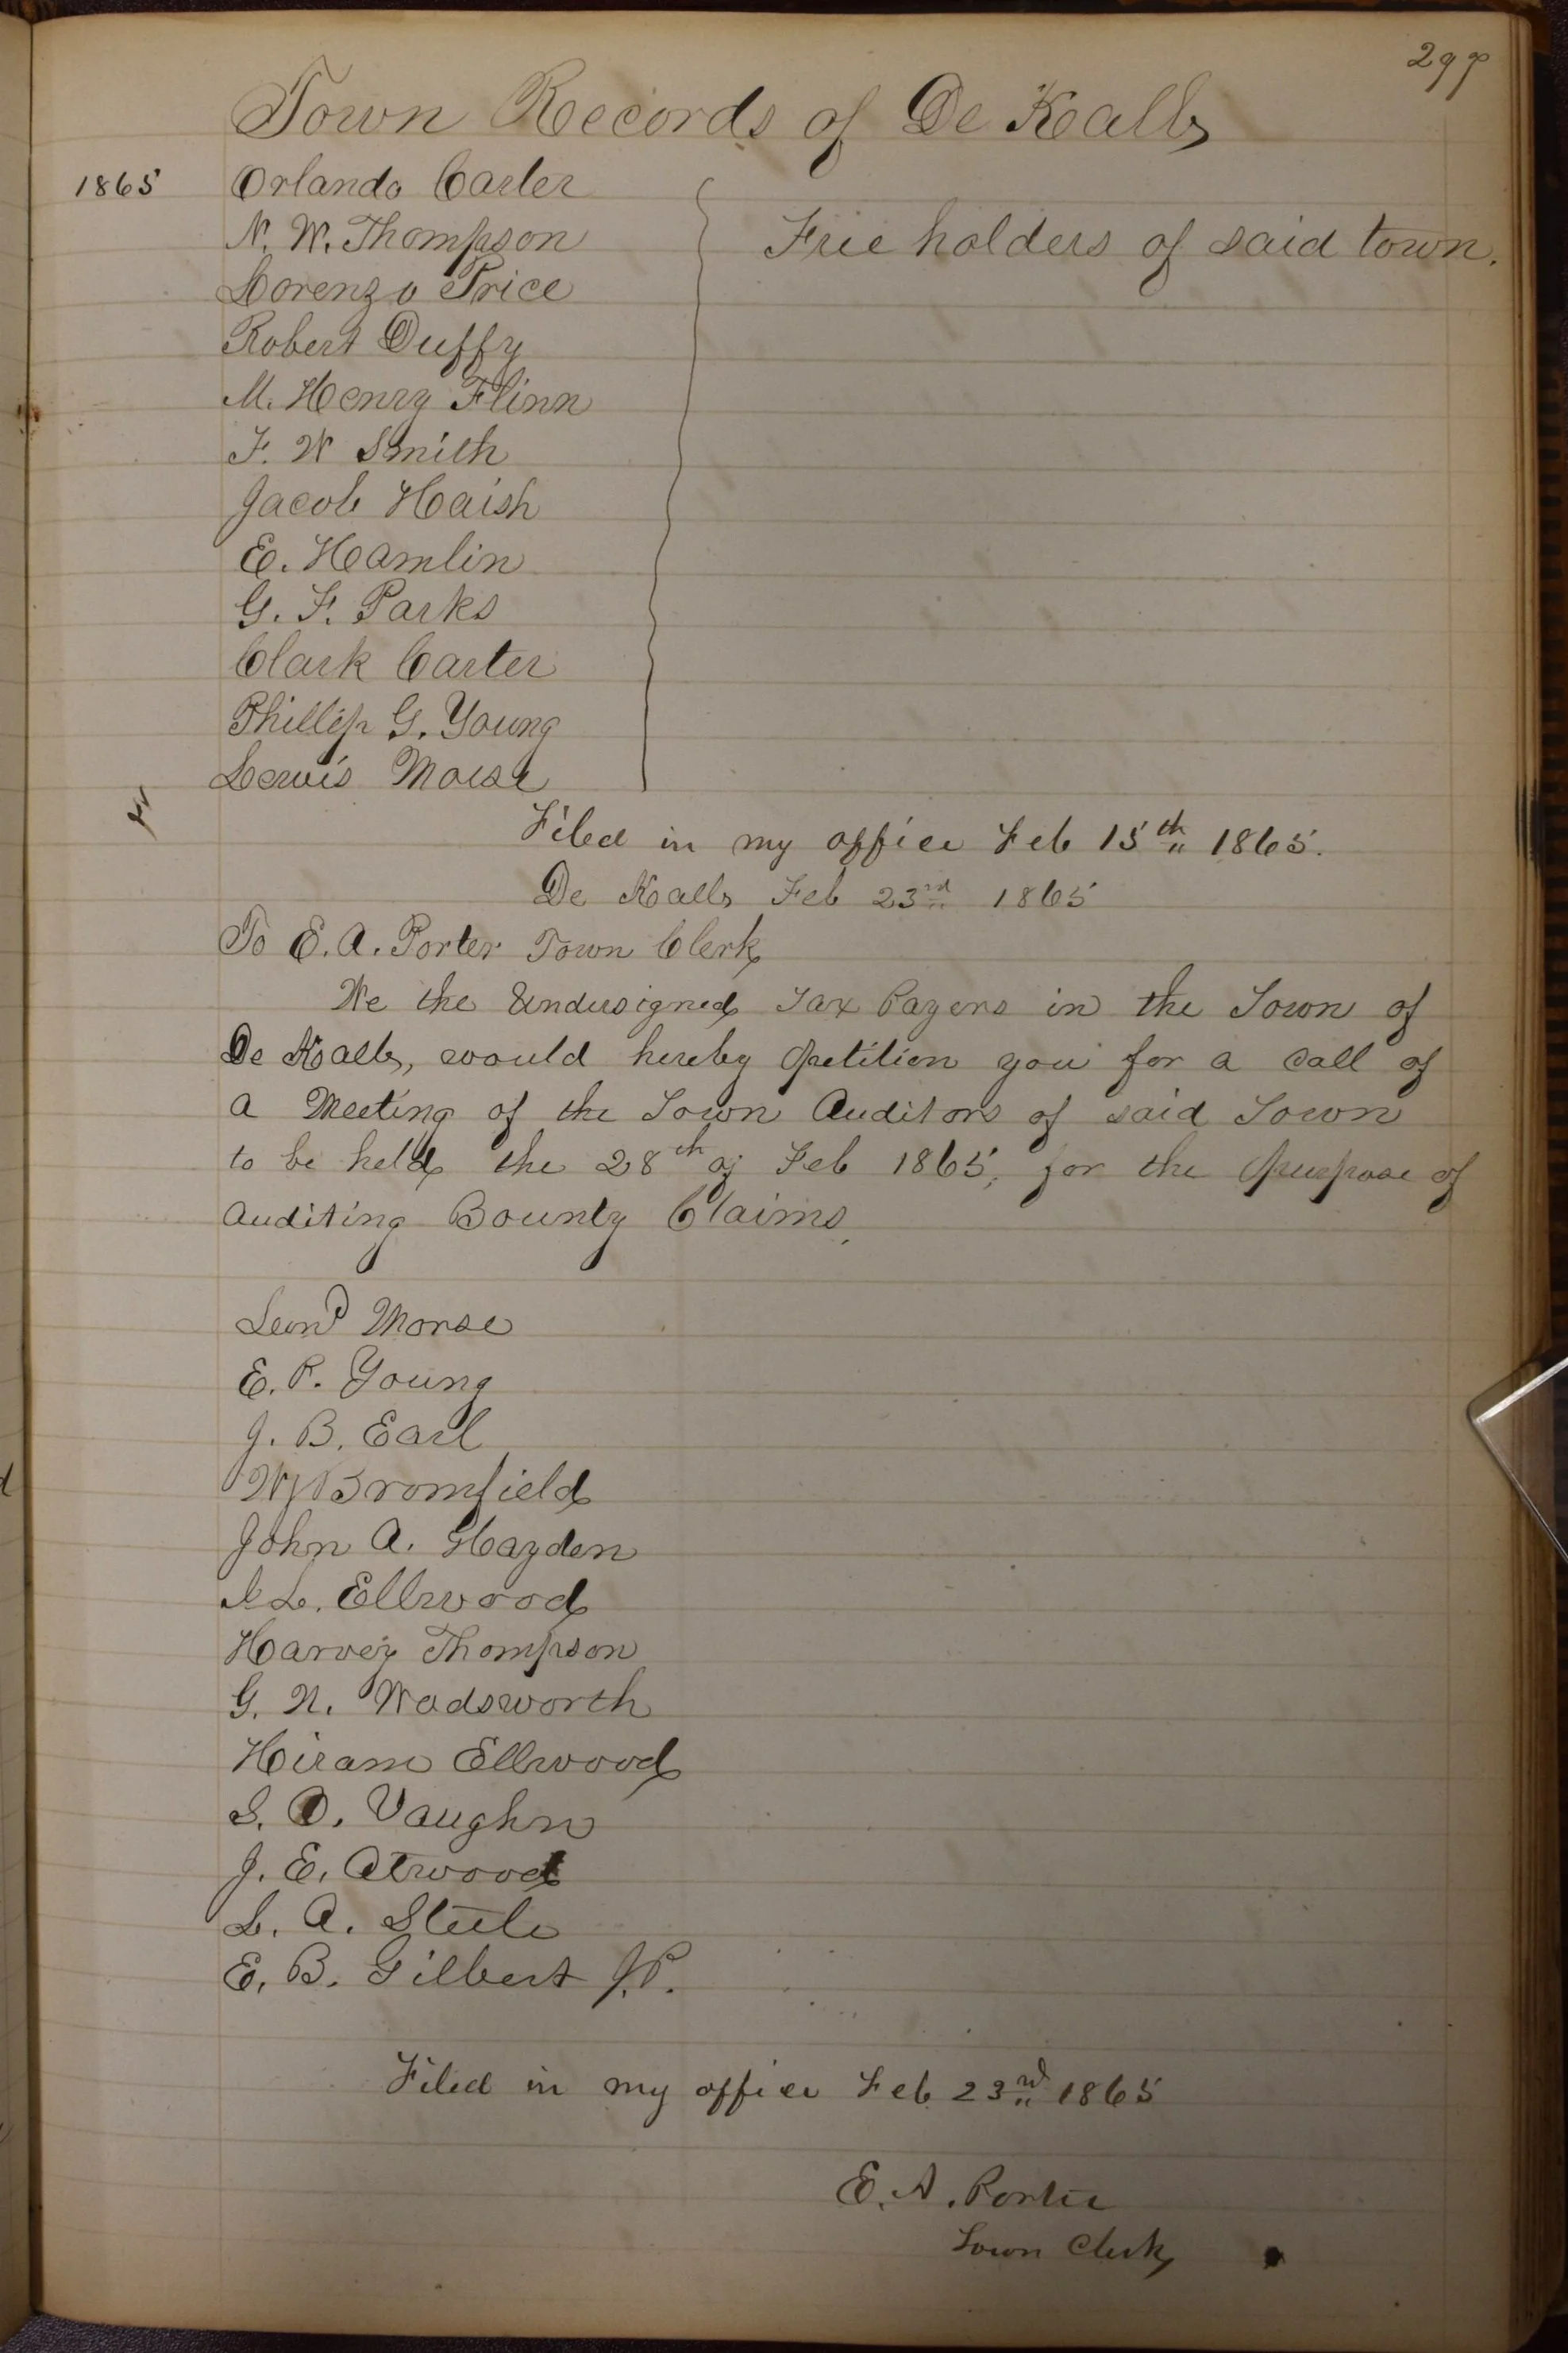 297
Town Records of De Kalb
1865 Orlando Carter
N. W. Thompson
Free holders of said town.
Lorenzo Price
Robert Duffy
M. Henry Flinn
F. W Smith
Jacob Haish
E. Hamlin
G. F. Parks
Clark Carter
Phillip G. Young
Lewis Morse
Filed in my office Feb 15th 1865.
De Kalb Feb 23rd 1865
To E. A. Porter Town Clerk
We the Undersigned Tax Payers in the Town of
De Kalb, would hereby petition you for a call of
a Meeting of the Town Auditors of said Town
to be held the 28th of Feb 1865, for the purpose of
Auditing Bounty Claims.
Leond Morse
E. P. Young
J. B. Earl
Bromfield
John A. Hayden
I L. Ellwood
Harvey Thompson
G. N. Wadsworth
Hiram Ellwood
S. O. Vaughn
J. E. Atwood
L. A. Steele
E. B. Gilbert J.P.
Filed in my office Feb 23rd 1865
E. A. Porter
Town Clerk